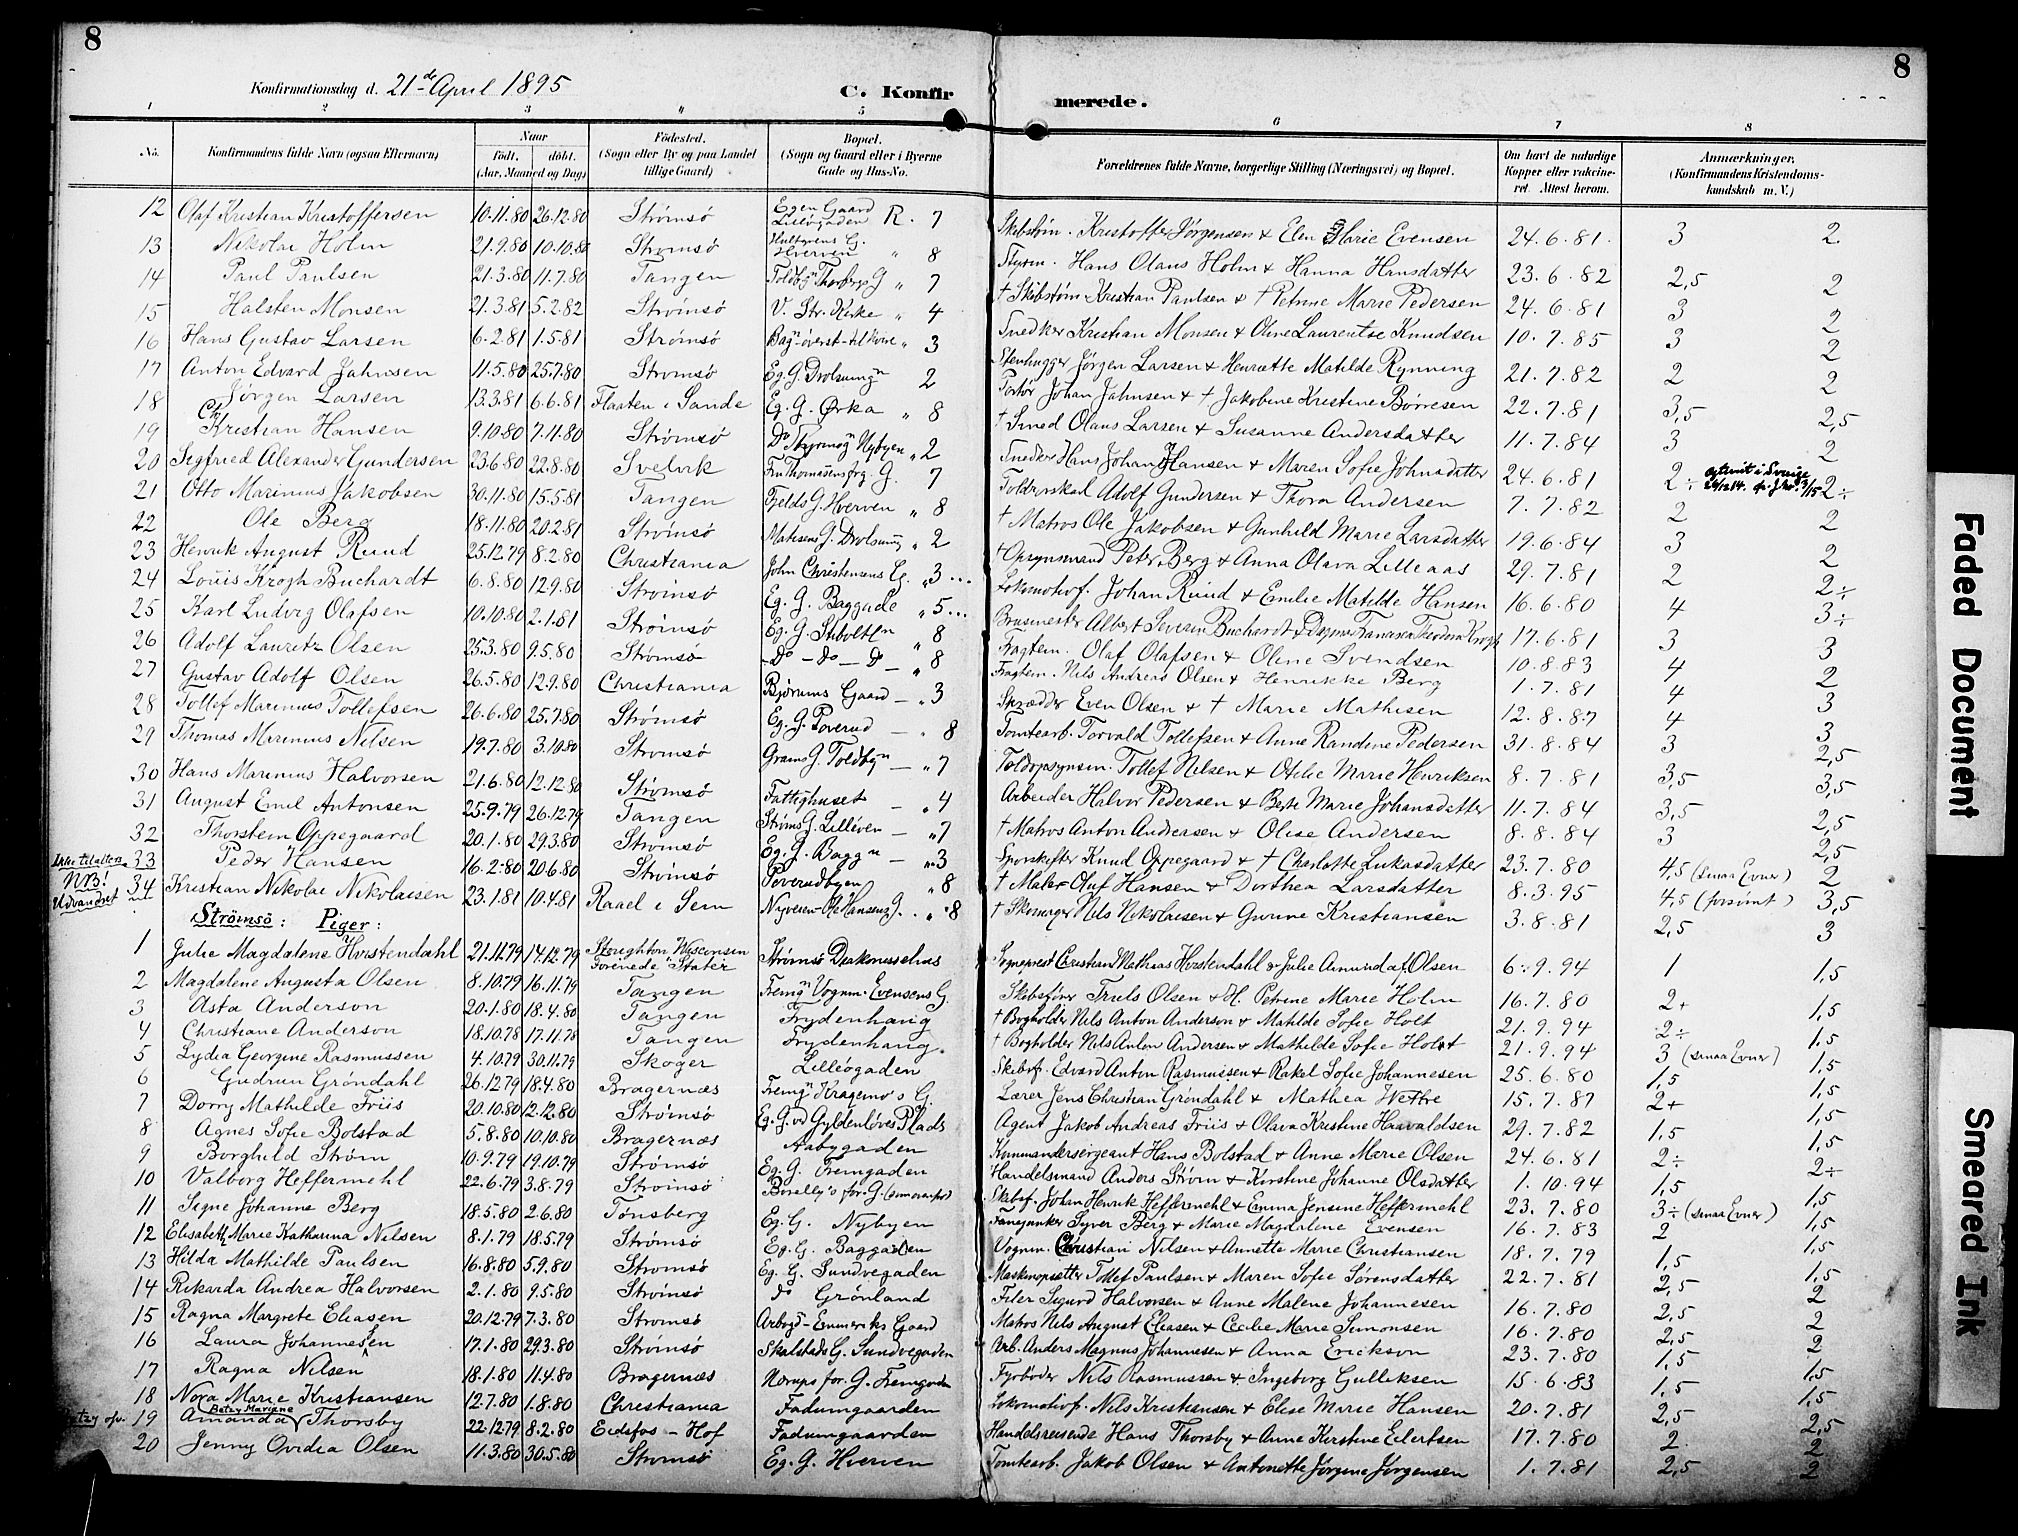 8
8
Konfirmationsdag d. 21de April 1895
C. Konfir
merede.
1 2 3 4 5 6 7 8
No. Konfirmandens fulde Navn (ogsaa Efternavn)
Naar
født. døbt.
(Aar, Maaned og Dag)
Fødested.
(Sogn eller By og paa Landet
tillige Gaard)
Bopæl.
(Sogn og Gaard eller i Byerne
Gade og Hus-No.
Forældrenes fulde Navne, borgerlige Stilling (Næringsvei) og Bopæl.
Om havt de naturlige
Kopper eller vaccine-
ret. Attest herom.
Anmærkninger.
(Konfirmandens Kristendoms-
kundskab m. V.)
12 Olaf Kristian Kristoffersen 10.11.80 26.12.80 Strømsø Egen Gaard Lilleøgaden R. 7 Skibstøm. Kristoffer Jørgensen & Elen Marie Evensen 24.6.81. 3 2
13 Nikolai Holm 21.9.80 10.10.80 Strømsø Hultgrens G. Hverven " 8 Styrm. Hans Olaus Holm & Hanna Hansdatter 23.6.82 2,5 2
14 Paul Paulsen 21.3.80 11.7.80 Tangen Toldbgn Thorbergs G " 7 † Skibstøm. Kristian Paulsen & † Petrine Marie Pedersen 24.6.81 3 2
15 Halsten Monsen 21.3.81 5.2.82 Strømsø V. Str. Kirke " 4 Snedker Kristian Monsen & Oline Laurentse Knudsen 10.7.85 3 2
16 Hans Gustav Larsen 6.2.81 1.5.81 Strømsø Bagn øverst til høire " 3 Stenhugger Jørgen Larsen & Henriette Matilde Rynning 21.7.82 2 2
17 Anton Edvard Jahnsen 11.5.80 25.7.80 Strømsø Eg. G. Drolsumgn 2 Johan Jahnsen & † Jakobine Kristine Børresen 22.7.81 3,5 2,5
18 Jørgen Larsen 13.3.81 6.6.81 Flaaten i Sande Eg. G. Ørka " 8 † Smed Olaus Larsen & Susanne Andersdatter 11.7.84 3 2
19 Chr Kristian Hansen 9.10.80 7.11.80 Strømsø Do Styrmogn Nybyen " 2 Snedker Hans Johan Hansen & Maren Sofie Johnsdatter 24.6.81 2÷ 2÷
20 Segfried Alexander Gundersen 23.6.80 22.8.80 Svelvik Fru Thomassens frg. G. 7 Toldrorskarl Adolf Gundersen & Thora Andersen 7.7.82 2 2
21 Otto Marinius Jakobsen 30.11.80 15.5.81 Tangen Fjelds G. Hverven " 8 † Matros Ole Jakobsen & Gunhild Marie Larsdatter 19.6.84 3 2
22 Ole Berg 18.11.80 20.2.81 Strømsø Matisens G. Drolsumg " 2 † Opsynsmand Peter Berg & Anna Olava Lilleaas 29.7.81 2 2÷
23 Henrik August Ruud 25.12.79 8.2.80 Christiania John Christensens Eg. " 3 ... Lokomotivf. Johan Ruud & Emilie Matilde Hansen 16.6.80 4 3÷
24 Louis Krogh Buchardt 6.8.80 12.9.80 Strømsø Eg. G. Baggade " 5 ... Brusmester Albert Severin Buchardt & Dagmar Fransisca Theodora Krogh 17.6.81 3 3
25 Karl Ludvig Olafsen 10.10.80 2.1.81 Strømsø Eg. G. Stiboltn " 8 Fragtem. Olaf Olafsen & Oline Svendsen 10.8.83 4 2
26 Adolf Lauretz Olsen 25.3.80 9.5.80 Strømsø - Do - do - do - " 8 Fragtem. Nils Andreas Olsen & Henrikke Berg 1.7.81 4 3
27 Gustav Adolf Olsen 26.5.80 12.9.80 Christiania Bjørums Gaard - " 3 Skrædder Even Olsen & † Marie Mathisen 12.8.87 4 3
28 Tollef Marinius Tollefsen 26.6.80 25.7.80 Strømsø Eg. G. Poverud - " 8 Tomtearb. Torvald Tollefsen & Anne Randine Pedersen 31.8.84 3 2,5
29 Thomas Marinius Nilsen 19.7.80 3.10.80 Strømsø Grams G. Toldbgn - " 7 Toldopsynsm. Tollef Nilsen & Otilie Marie Henriksen 8.7.81 3,5 3,5
30 Hans Marinius Halvorsen 21.6.80 12.12.80 Strømsø Fattighuset - " 4 Arbeider Halvor Pedersen & Berte Marie Johansdatter 11.7.84 3,5 2,5
31 August Emil Antonsen 25.9.79 26.12.79 Tangen Strøms G. Lilleven - " 7 † Matros Anton Andersen & Olise Andersen 8.8.84 3 2,5
32 Thorstein Oppegaard 20.1.80 29.3.80 Strømsø Eg. G. Baggn - " 3 Sporskifter Knud Oppegaard & † Charlotte Lukasdatter 23.7.80 4,5 (smaa Evner) 2
33 Peder Hansen 16.2.80 20.6.80 Strømsø Poverudbyen " 8 † Maler Oluf Hansen & Dorthea Larsdatter 8.3.95 4,5 (forsømt) 3,5
NB! Udvandret 34 Kristian Nikolai Nikolaisen 23.1.81 10.4.81 Raael i Sem Nyveien Ole Hansens G. " 8 † Skomager Nils Nikolaisen & Gurine Kristiansen 3.8.81 2,5 3
Strømsø: Piger:
1 Julie Magdalene Hvistendahl 21.11.79 14.12.79 Stoughton Wisconsin Forenede Stater Strømsø Diakonissehus Sognepræst Christian Mathias Hvistendahl & Julie Amunda f. Olsen 6.9.94 1 1,5
2 Magdalene Augusta Olsen 8.10.79 16.11.79 Tangen Fremgn Vognm. Evensens G. Skibsfører Truls Olsen & H. Petrine Marie Holm 16.7.80 2+ 1,5
3 Asta Anderson 20.1.80 18.4.80 Tangen Frydenhaug † Bogholder Nils Anton Anderson & Matilde Sofie Holt 21.9.94 2÷ 1,5
4 Christiane Anderson 18.10.78 17.11.78 Tangen Frydenhaug. † Bogholder Nils Anton Andersen & Mathilde Sofie Holst 21.9.94 3 (smaa Evner) 1,5
5 Lydia Georgine Rasmussen 4.10.79 30.11.79 Skoger Lilleøgaden Skibsf. Edvard Anton Rasmussen & Rakel Sofie Johannesen 25.6.80 1,5 1,5
6 Gudrun Grøndahl 26.12.79 18.4.80 Bragernæs Fremgn Kragemo's G. Lærer Jens Christian Grøndahl & Mathea Wetbre 15.7.87 2+ 1,5
7 Dorry Mathilde Friis 20.10.80 12.12.80 Strømsø Eg. G. vd Gyldenløves Plads Agent Jakob Andreas Friis & Olava Kristine Haavaldsen 29.7.82 1,5 1,5
8 Agnes Sofie Bolstad 5.8.80 10.10.80 Bragernæs Aabygaden Kommandersergeant Hans Bolstad & Anne Marie Olsen 24.6.81 2÷ 2÷
9 Borghild Strøm 10.9.79 19.10.79 Strømsø Eg. G. Fremgaden Handelsmand Anders Strøm & Kirstine Johanne Olsdatter 1.10.94 1,5 1,5
10 Valborg Heffermehl 22.6.79 3.8.79 Strømsø Skibsf. Johan Henrik Heffermehl & Emma Jensine Heffermehl 23.7.80 3÷ (smaa Evner) 1,5
11 Signe Johanne Berg 18.5.80 2.6.80 Tønsberg Eg. G. Nybyen Fanejunker Syver Berg & Marie Magdalene Evensen 16.7.83 2 1,5
12 Elisabeth Marie Katharina Nilsen 8.1.79 18.5.79 Strømsø Eg. G. Baggaden Vognm. Christian Nilsen & Annette Marie Christiansen 18.7.79 1,5 1,5
13 Hilda Mathilde Paulsen 16.8.80 5.9.80 Strømsø Eg. G. Sundvegaden Maskinopsetter Tollef Paulsen & Maren Sofie Sørensdatter 22.7.81 2,5 2
14 Rikarda Andrea Halvorsen 2.1.80 9.5.80 Strømsø do Grønland Filer Sigurd Halvorsen & Anne Malene Johannesen 16.7.80 2,5 2
15 Ragna Margrete Eliasen 20.12.79 7.3.80 Strømsø Arbogd - Emmeriks Gaard Matros Nils August Eliasen & Cecilie Marie Simonsen 16.7.80 2,5 2
16 Laura Johannesen 17.1.80 29.3.80 Strømsø Skalstads G. Sundvegaden Arb. Anders Magnus Johannesen & Anna Erickson 23.7.80 1,5 1,5
17 Ragna Nilsen 18.1.80 11.4.80 Bragernæs Nørups for. G. Fremgaden Fyrbøder Nils Rasmussen & Ingeborg Gulliksen 15.6.83 1,5 1,5
18 Nora Marie Kristiansen 12.7.80 1.8.80 Christiania Fadumgaarden Lokomotivf. Nils Kristiansen & Elise Marie Hansen 20.7.81 2,5 2,5
19 Amanda Betzy Mariane Thorsby 22.12.79 8.2.80 Eidsfos - Hof Fadumgaarden Handelsreisende Hans Thorsby & Anne Kirstine Eilertsen 17.7.80 2. 2
20 Jenny Ovidia Olsen 11.3.80 30.5.80 Strømsø Eg. G. Hverven Tomtearb. Jakob Olsen & Antonette Jørgine Jørgensen 1.7.81 2,5 2
Faded Document
Smeared Ink